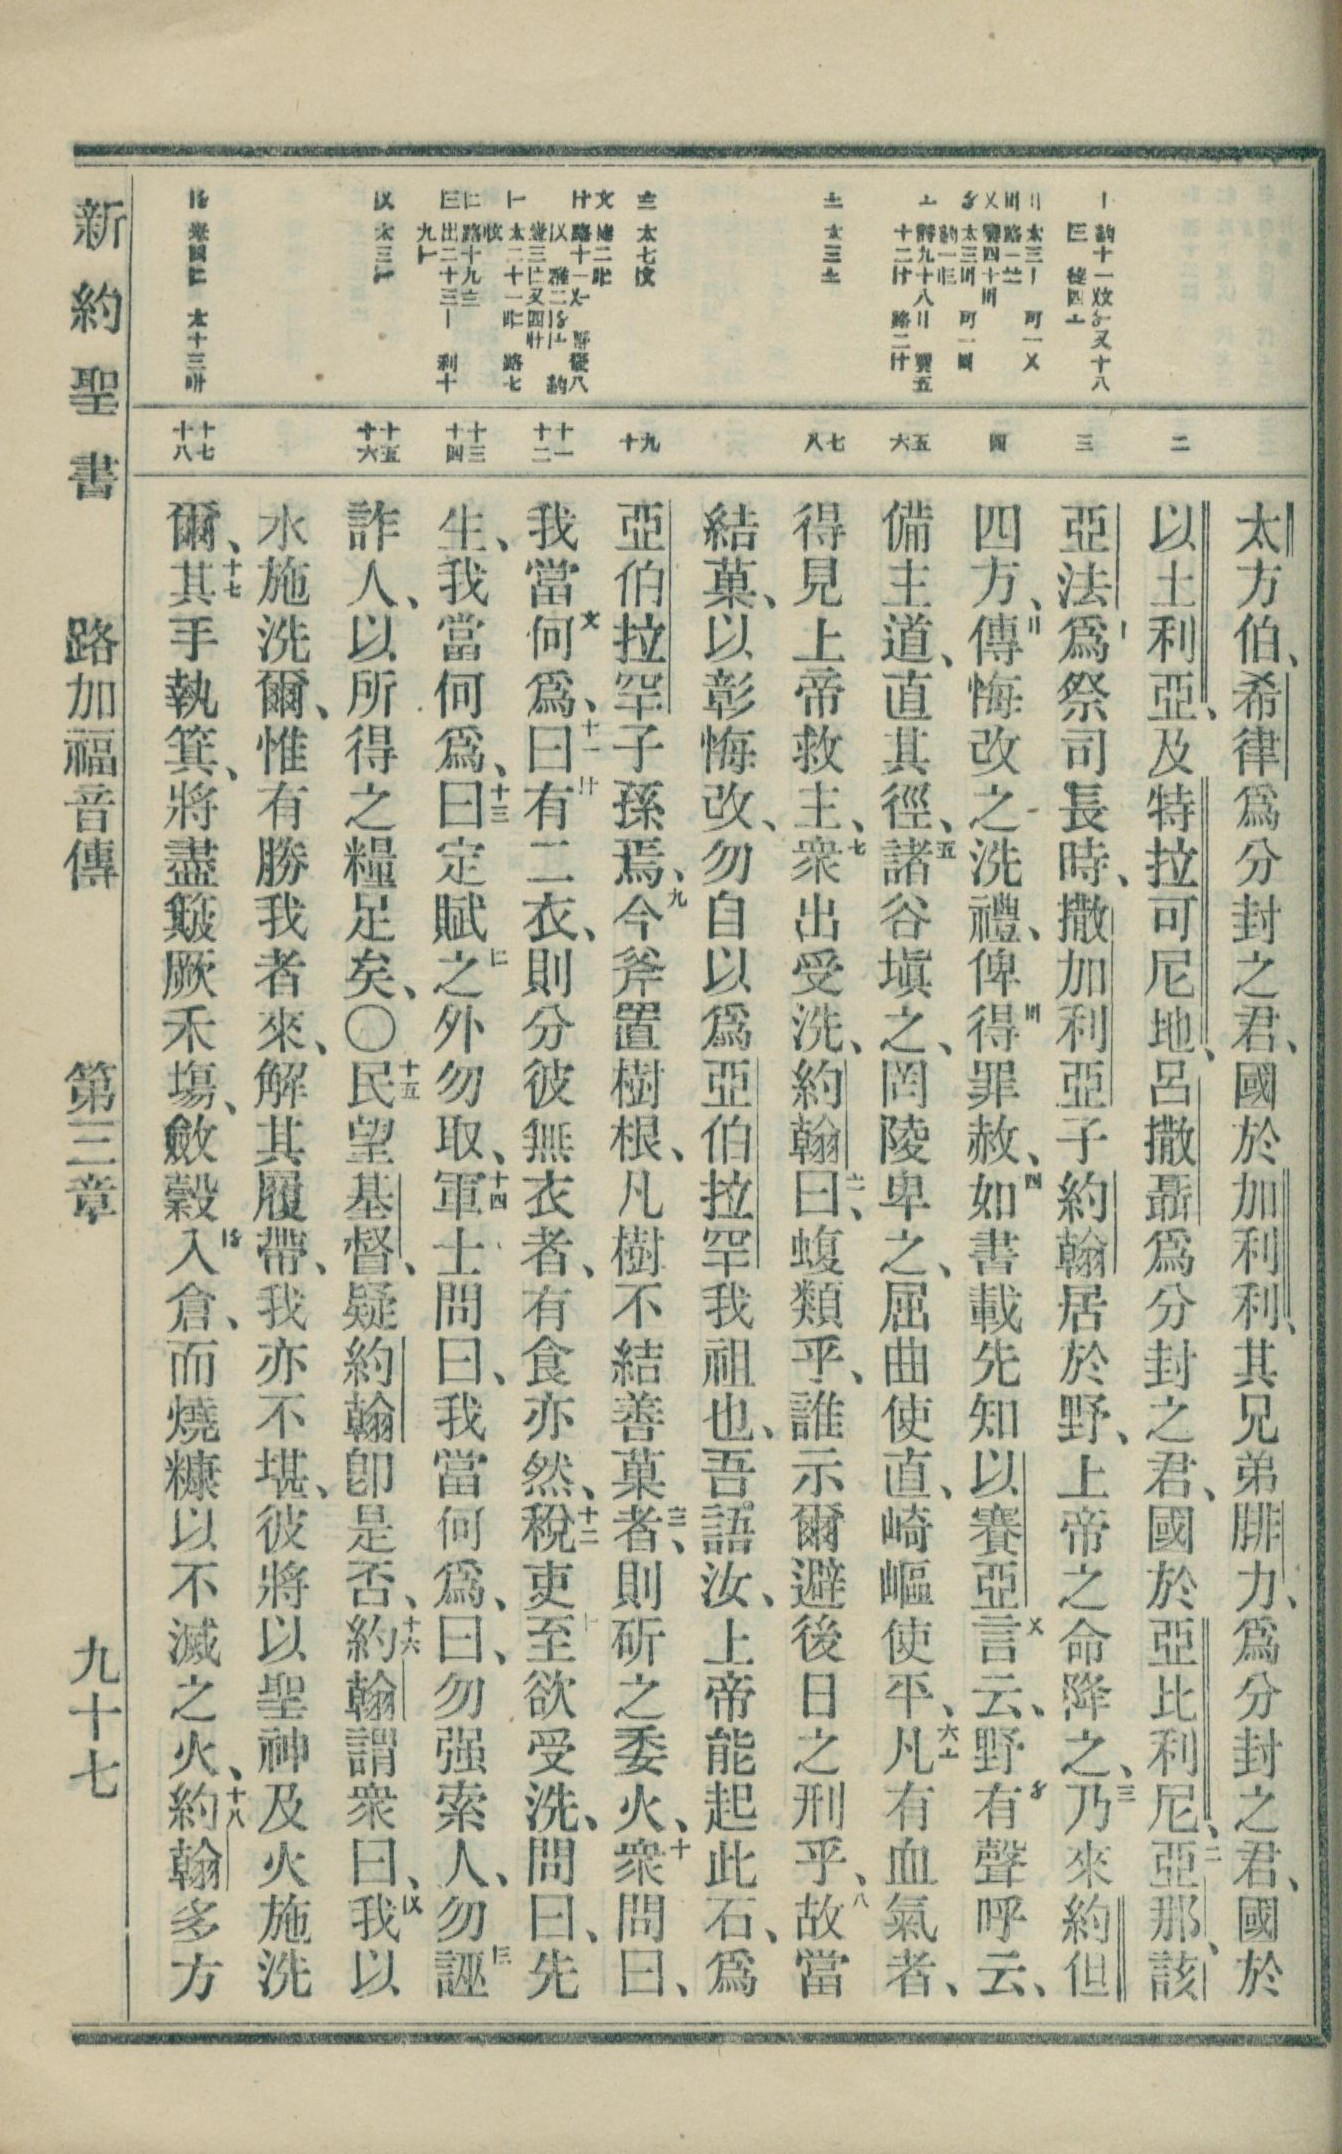 太方伯、希律爲分封之君、國於加利利、其兄弟腓力、爲分封之君、國於
以土利亞、及特拉可尼地、呂撒聶爲分封之君、國於亞比利尼、二亞那、該
亞法爲祭司長時、撒加利亞子約翰居於野、上帝之命降之、三乃來約但
四方、傳悔改之洗禮、俾得罪赦、四如書載先知以賽亞言云、野有聲呼云、
備主道、直其徑、五諸谷塡之、岡陵卑之、屈曲使直、崎嶇使平、六凡有血氣者、
得見上帝救主、七衆出受洗、約翰曰、蝮類乎、誰示爾避後日之刑乎、八故當
結菓、以彰悔改、勿自以爲亞伯拉罕我祖也、吾語汝、上帝能起此石、爲
亞伯拉罕子孫焉、九今斧置樹根、凡樹不結善菓者、則斫之委火、十衆問曰、
我當何爲、十一曰有二衣、則分彼無衣者、有食亦然、十二稅吏至欲受洗、問曰、先
生、我當何爲、十三曰定賦之外勿取、十四軍士問曰、我當何爲、曰、勿强索人、勿誣
詐人、以所得之糧足矣、〇十五民望基督、疑約翰卽是否、十六約翰謂衆曰、我以
水施洗爾、惟有勝我者來、解其履帶、我亦不堪、彼將以聖神及火施洗
爾、十七其手執箕、將盡簸厥禾塲、斂穀入倉、而燒糠以不滅之火、十八約翰多方
新約聖書 路加福音傳 第三章 九十七
二
三
四
五
六
七
八
九
十
十一
十二
十三
十四
十五
十六
十七
十八